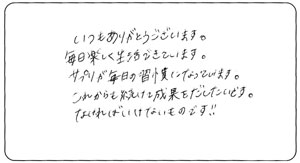 いつもありがとうございます。
毎日楽しく生活できています。
サプリが毎日の習慣になっています。
これからも続けて成果をだしたいです。
なければいけないものです!!